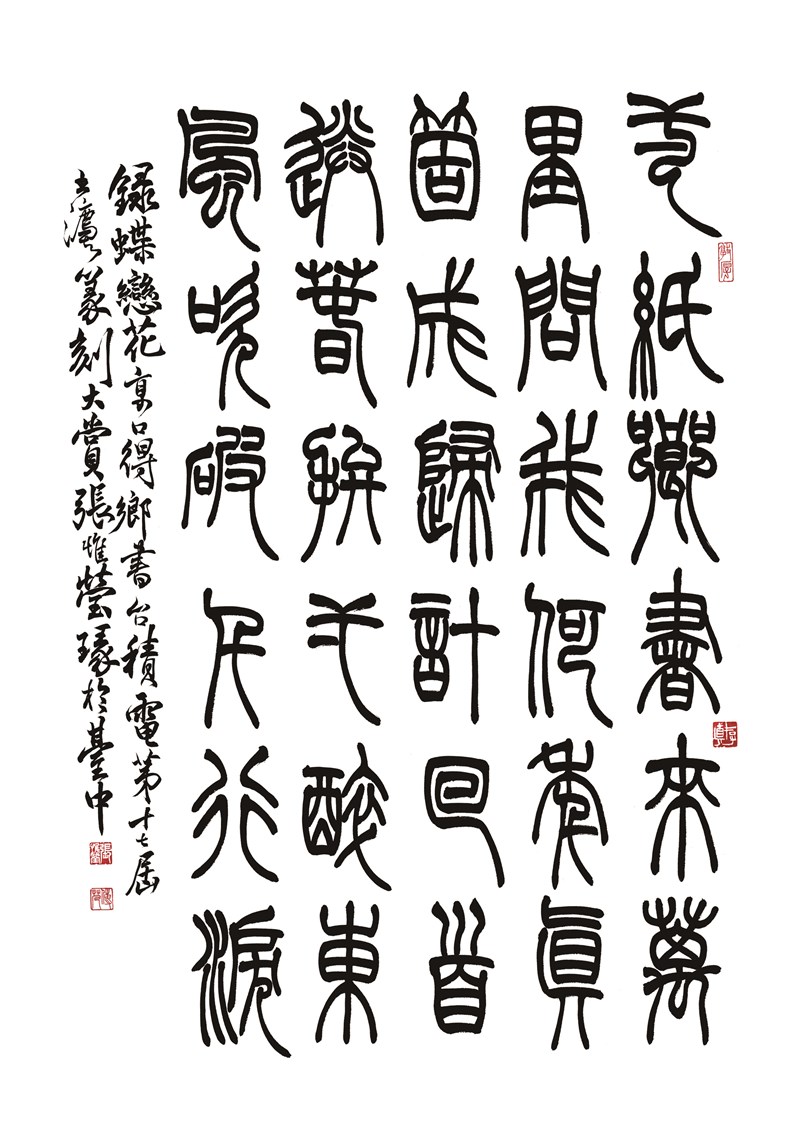 一紙鄉書來萬
里問我何年眞
箇成歸計回首
送春拚一醉東
風吹破千行淚
錄蝶戀花京口得鄉書台積電第十七屆
書灋篆刻大賞張惟瑩瑑於臺中